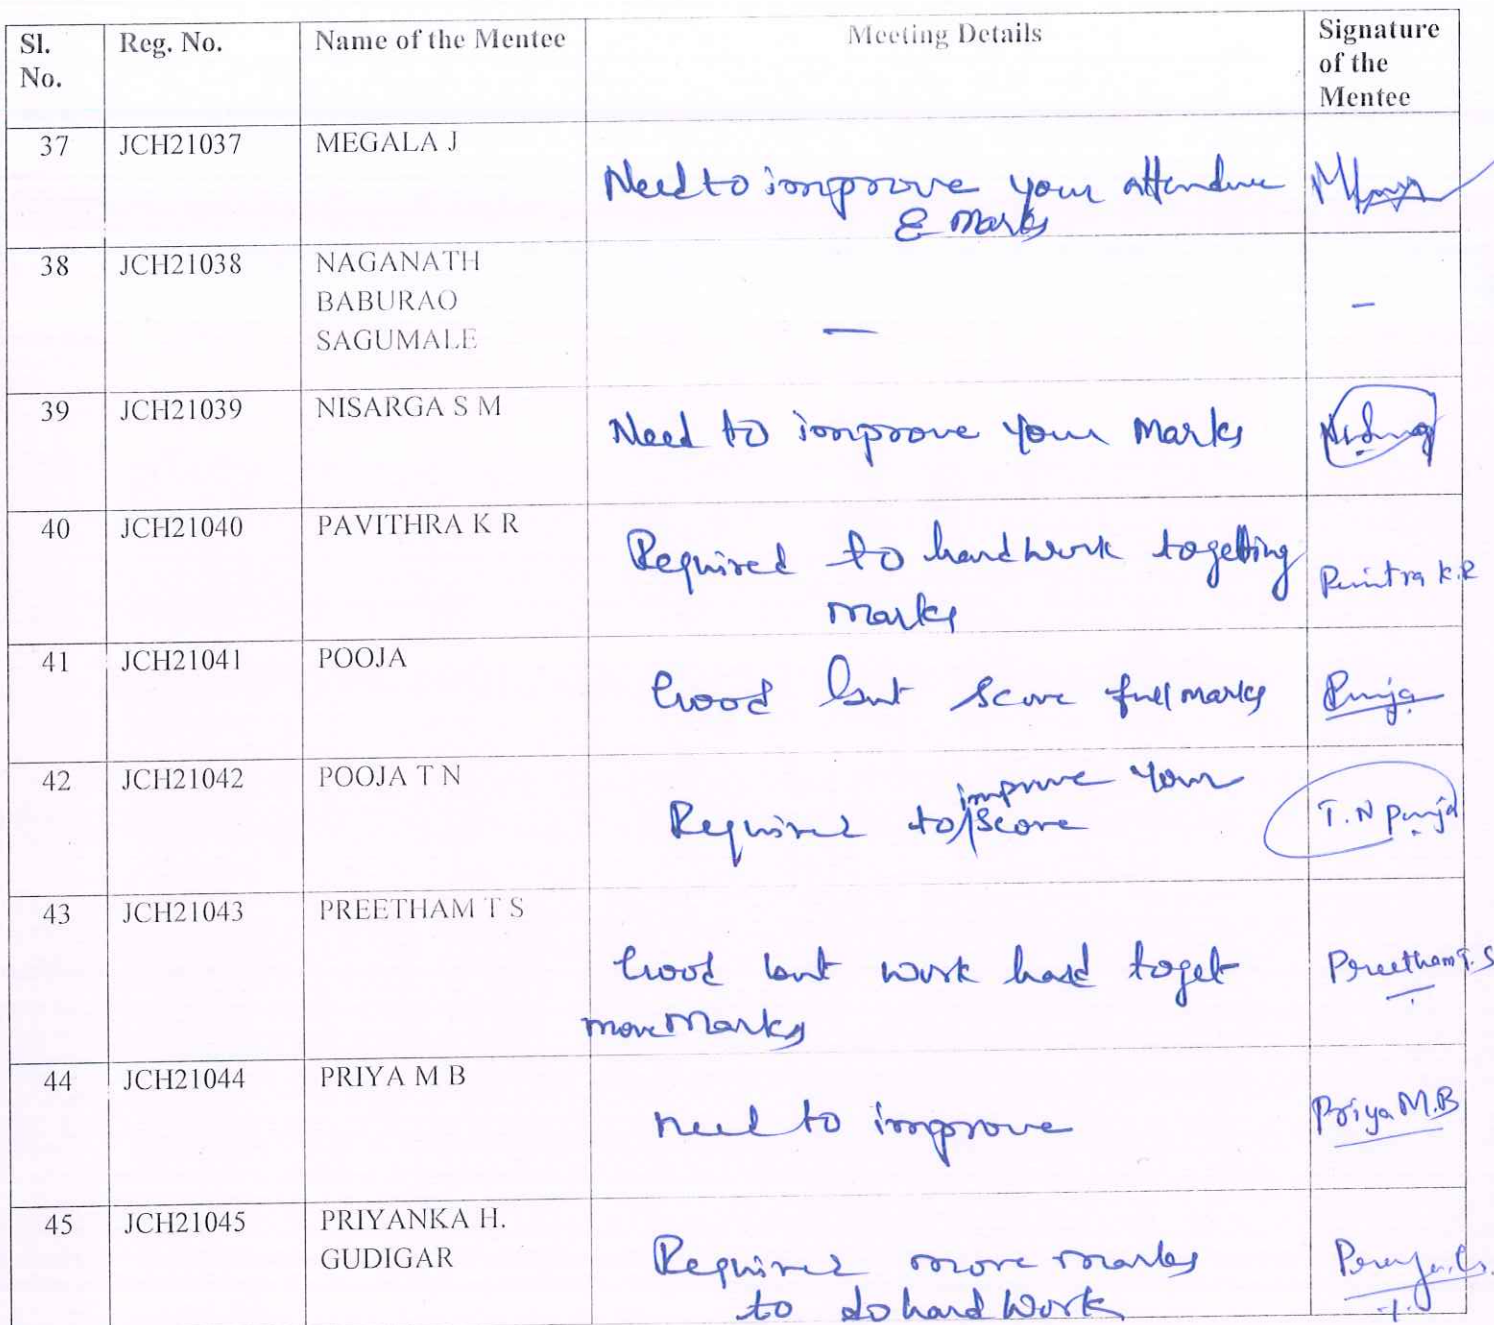 Sl. No. Reg. No. Name of the Mentee Meeting Details Signature of the Mentee
37 JCH21037 MEGALA J Need to improve your attendance
& marks
38 JCH21038 NAGANATH
BABURAO
SAGUMALE — –
39 JCH21039 NISARGA S M Need to improve your Marks
40 JCH21040 PAVITHRA K R Required to hard work to getting
marks K.R
41 JCH21041 POOJA Good but score full marks
42 JCH21042 POOJA T N Required to improve your
score T.N
43 JCH21043 PREETHAM T S Good but work hard to get
more Marks Preetham T.S
44 JCH21044 PRIYA M B need to improve Priya M.B
45 JCH21045 PRIYANKA H.
GUDIGAR Required more marks
to do hard work